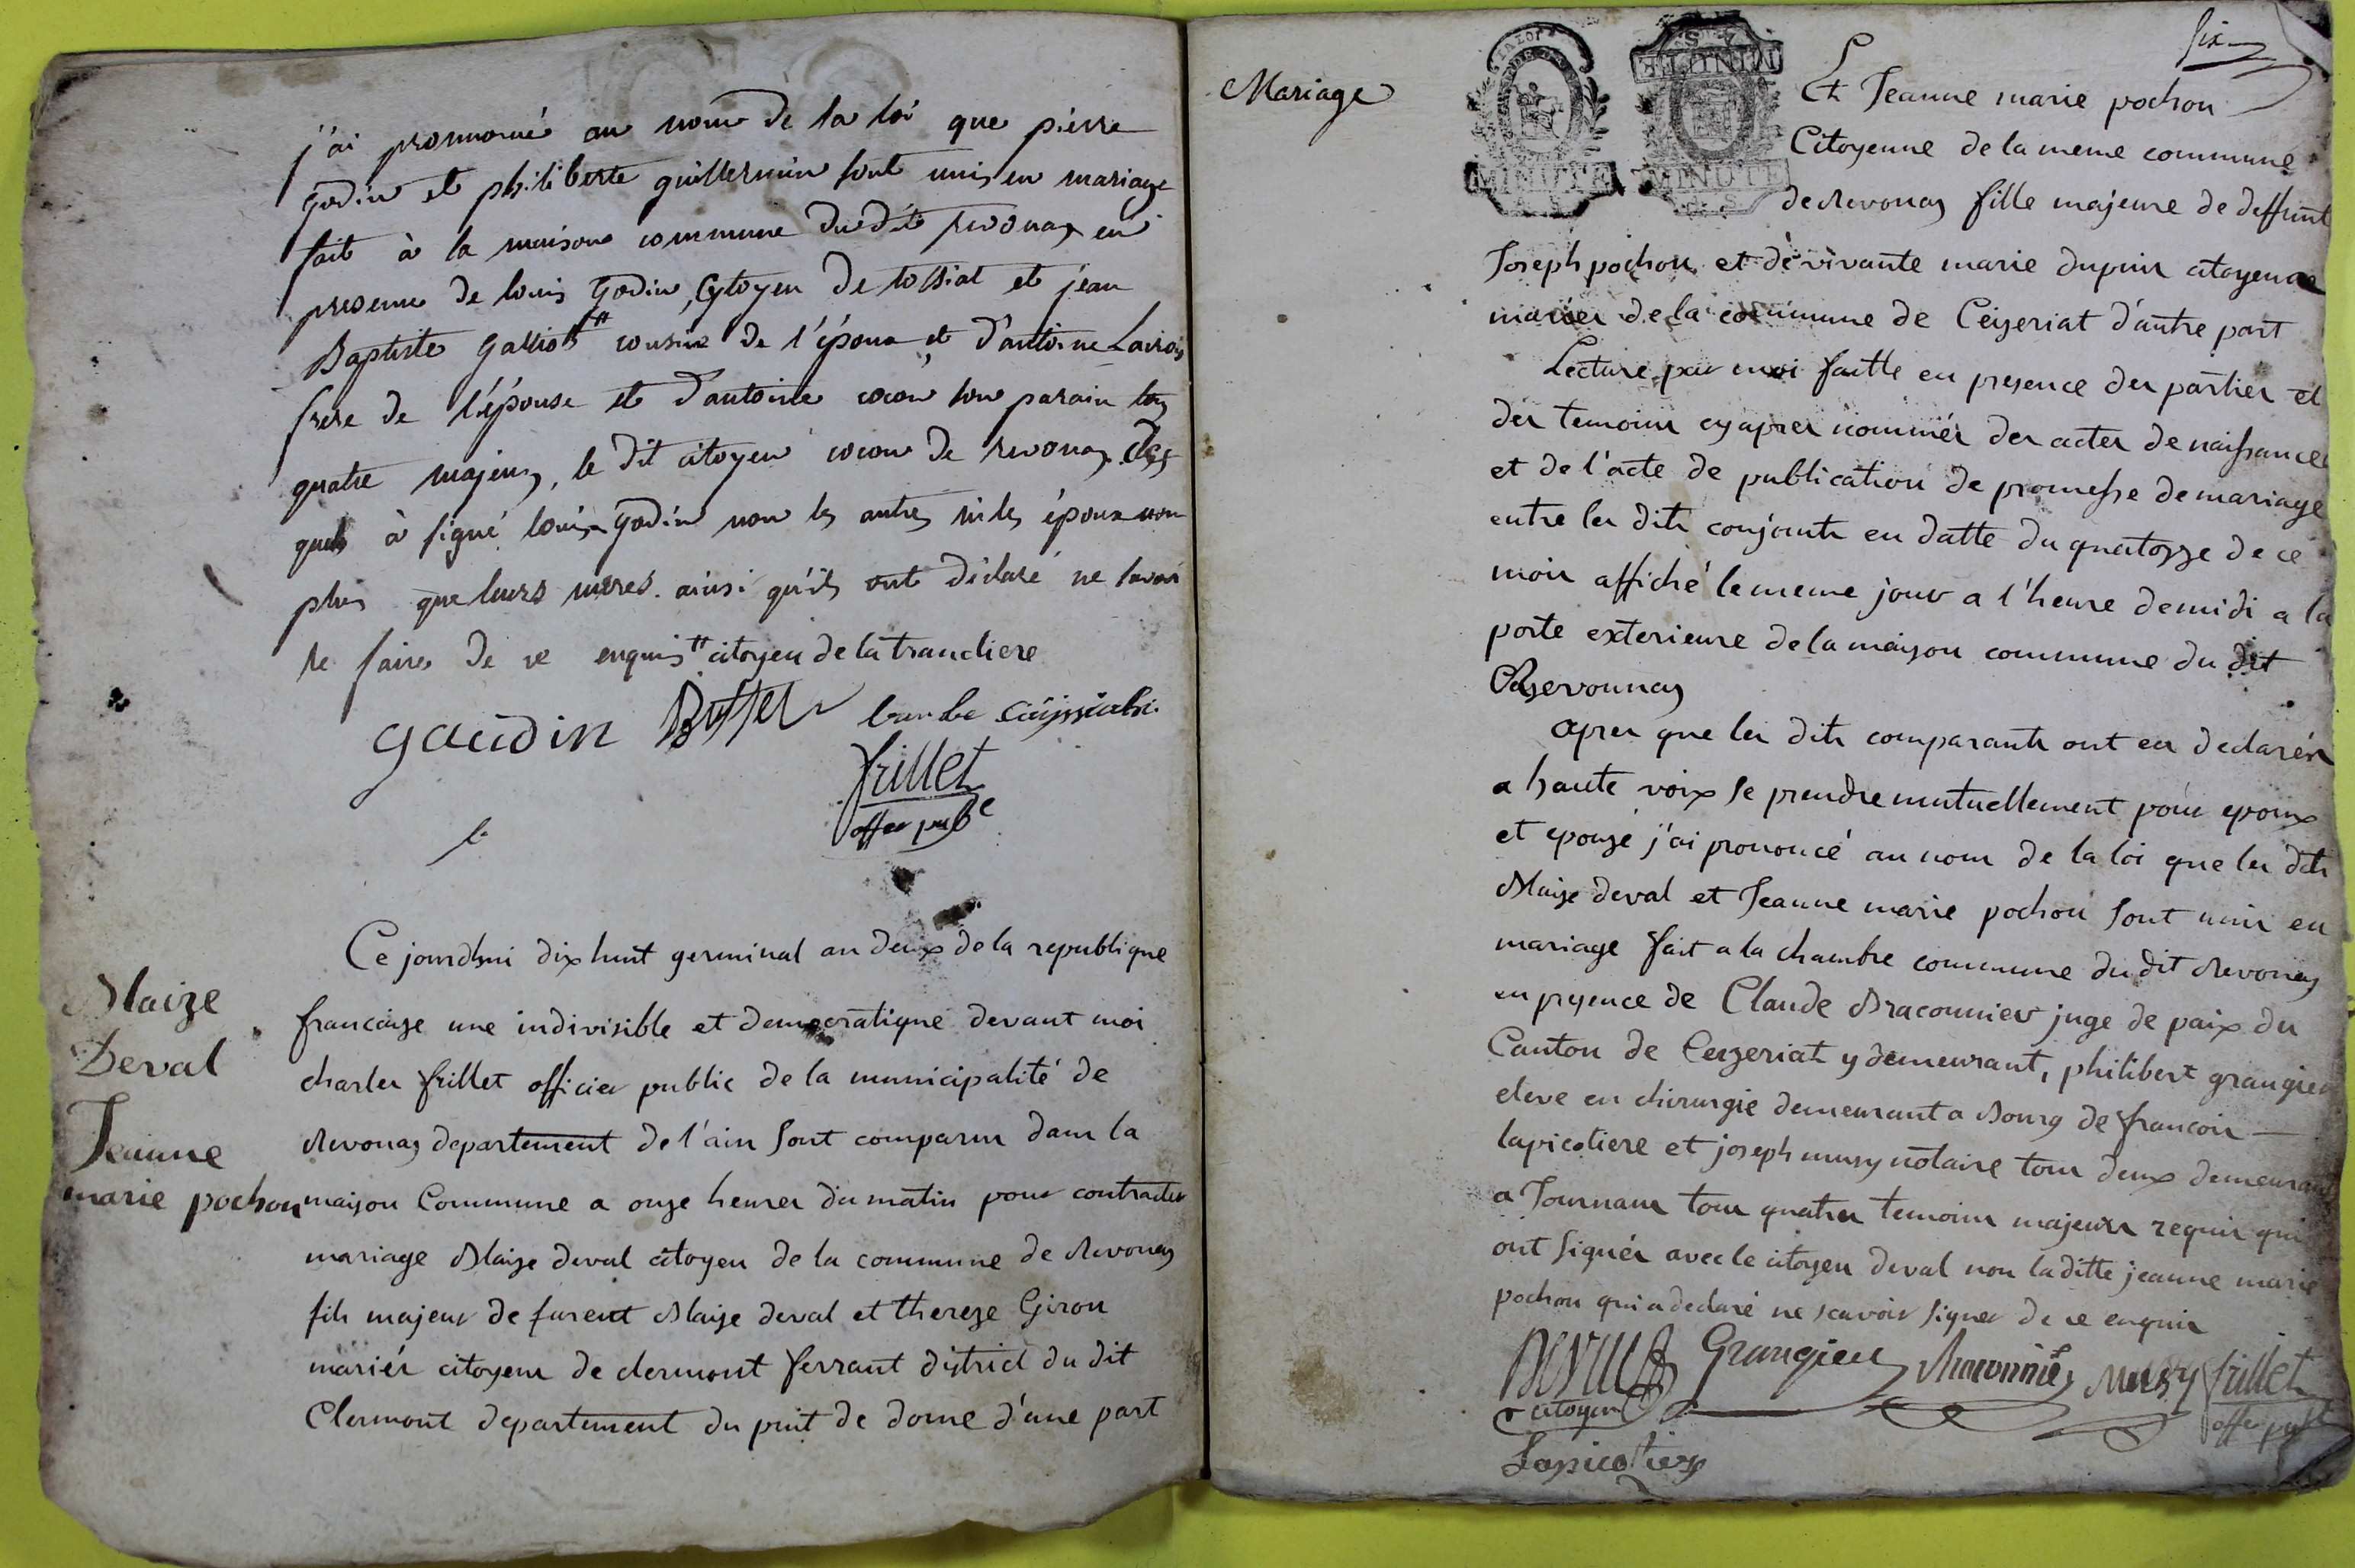 j'ai prononcé au nom de la loi que pierre
godin et philiberte guillermin sont unis en mariage
fait à la maison commune du dit revonas en
presence de louis godin, Cytoyen de tossiat et jean
Baptiste galliot # cousin de l'époux et d'antoine
frere de l'épouse et d'antoine cocon son parain tous
quatre majeurs, le dit citoyen cocon de revonas. des
quels à signé louis godin non les autres ni les époux non
plus que leurs meres. ainsi qu'ils ont déclaré ne savoir
le faire de ce enquis # citoyen de la trancliere
gaudin Buffet
frillet
offer pube
Blaize
Deval
Jeanne
marie pochon
Ce jourdhui dix huit germinal an deux de la republique
francaize une indivisible et democratique devant moi
charles frillet officier public de la municipalité de
Revonas departement de l'ain sont comparus dans la
maison Commune a onze heures du matin pour contracter
mariage Blaize deval citoyen de la commune de Revonas
fils majeur de furent Blaize deval et thereze Giron
mariés citoyens de clermont ferrant district du dit
Clermont departement du puit de dome d'une part
six
Mariage
LA LOI
MINUTE
MINUTE
Et Jeanne marie pochon
Citoyenne de la meme commune
de Revonas fille majeure de deffunt
Joseph pochon et de vivante marie dupuis citoyens
mariés de la commune de Ceizeriat d'autre part
Lecture par moi faitte en presence des parties et
des temoins cy apres nommés des actes de naissances
et de l'acte de publication de promesse de mariage
entre les dits conjoints en datte du quatorze de ce
mois affiché le meme jour a l'heure de midi a la
porte exterieure de la maison commune du dit
Revonnas
apres que les dits comparants ont eu declarés
a haute voix se prendre mutuellement pour epoux
et epouze j'ai prononcé au nom de la loi que les dits
Blaize deval et Jeanne marie pochon sont unis en
mariage fait a la chambre commune du dit Revonas
en presence de Claude Braconnier juge de paix du
Canton de Ceyzeriat y demeurant, philibert grangier
eleve en chirurgie demeurant a Bourg de francois
lapicotiere et joseph musy notaire tous deux demeurant
a Journans tous quatres temoins majeurs requis qui
ont signés avec le citoyen deval non laditte jeanne marie
pochon qui a declaré ne scavoir signer de ce enquis
Deval Grangier Braconnier Musy frillet
citoyen offer pube
Lapicotiere